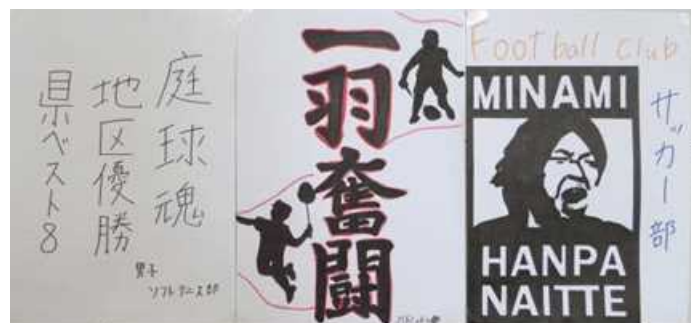 庭球魂
地区優勝
県ベスト8
男子
ソフトテニス部
一羽奮闘
バドミントン部
Football Club
MINAMI
HANPA
NAITTE
サッカー部